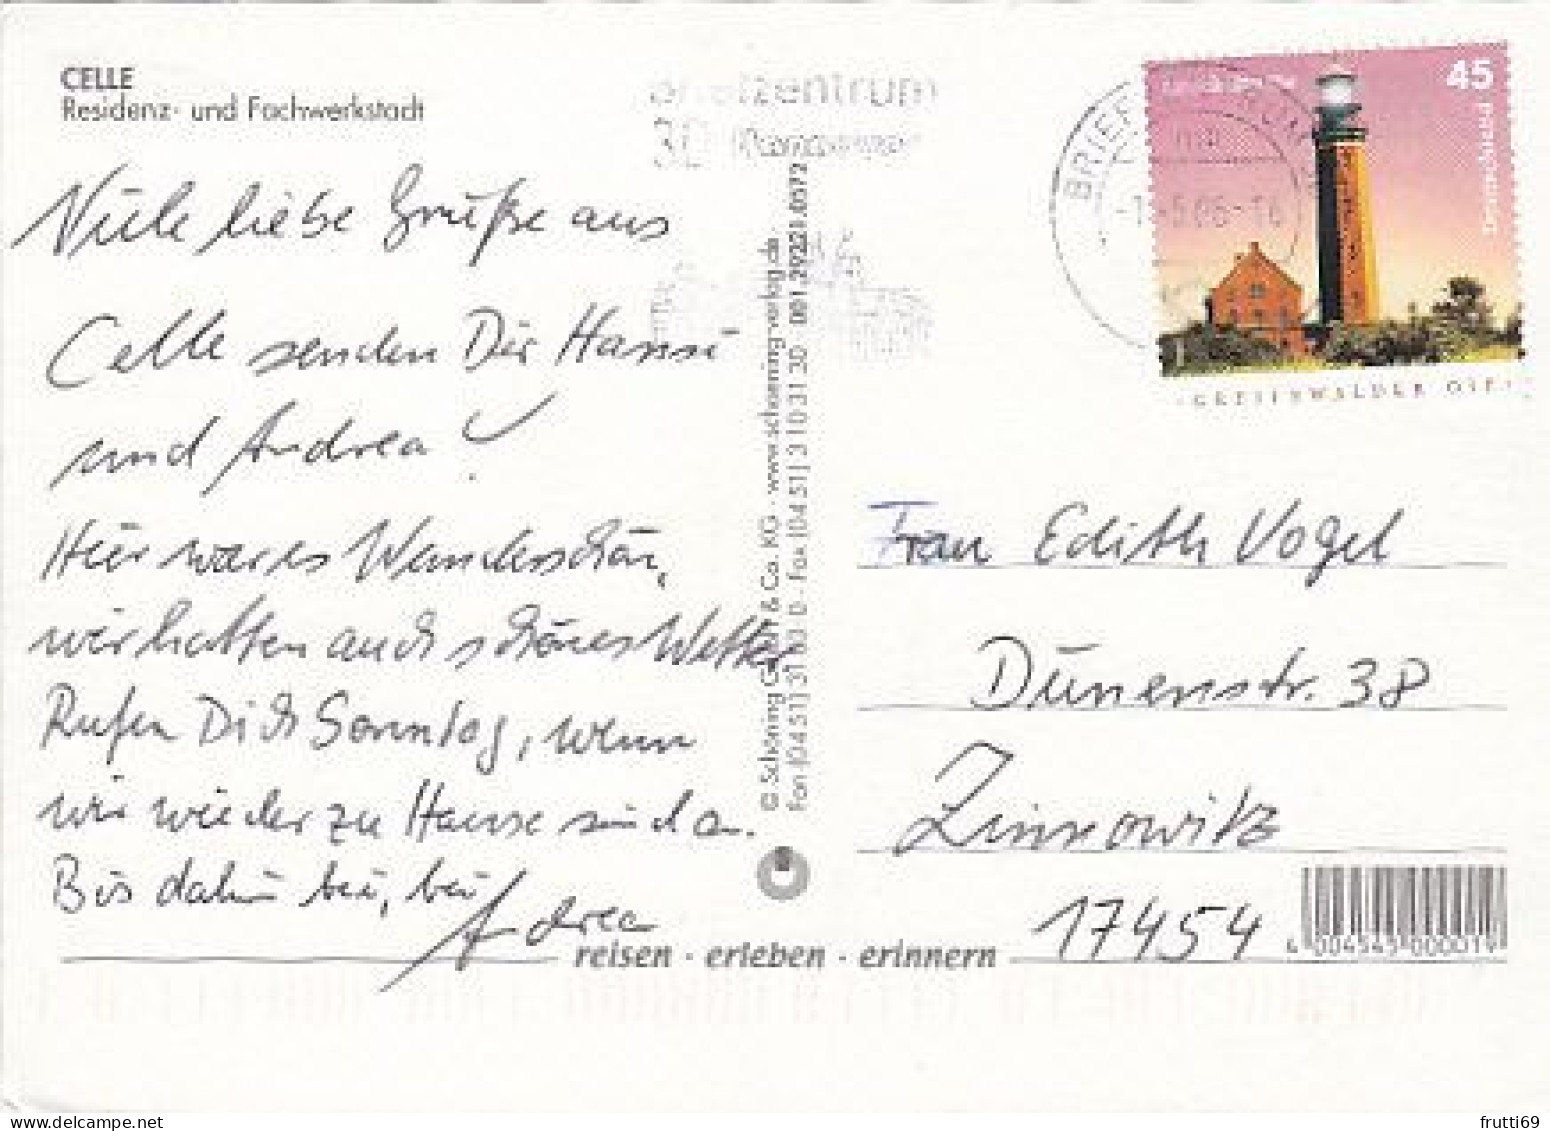 CELLE
Residenz- und Fachwerkstadt
Viele liebe Grüße aus
Celle senden Dir Hansi
und Andrea!
Hier war es Wunderschön,
wir hatten auch schönes Wetter
Rufen Dich Sonntag, wenn
wir wieder zu Hause sind an.
Bis dahin
Andrea
© Schöning GmbH & Co. KG · www.schoening-verlag.de
Fon (04 51) 3 10 31 20
001.29221.0372
reisen · erleben · erinnern
30
BRIEF
45
Deutschland
GREIFSWALDER OIE
Frau Edith Vogel
Dünenstr. 38
Zinnowitz
17454
4 004545 000019
frutti69